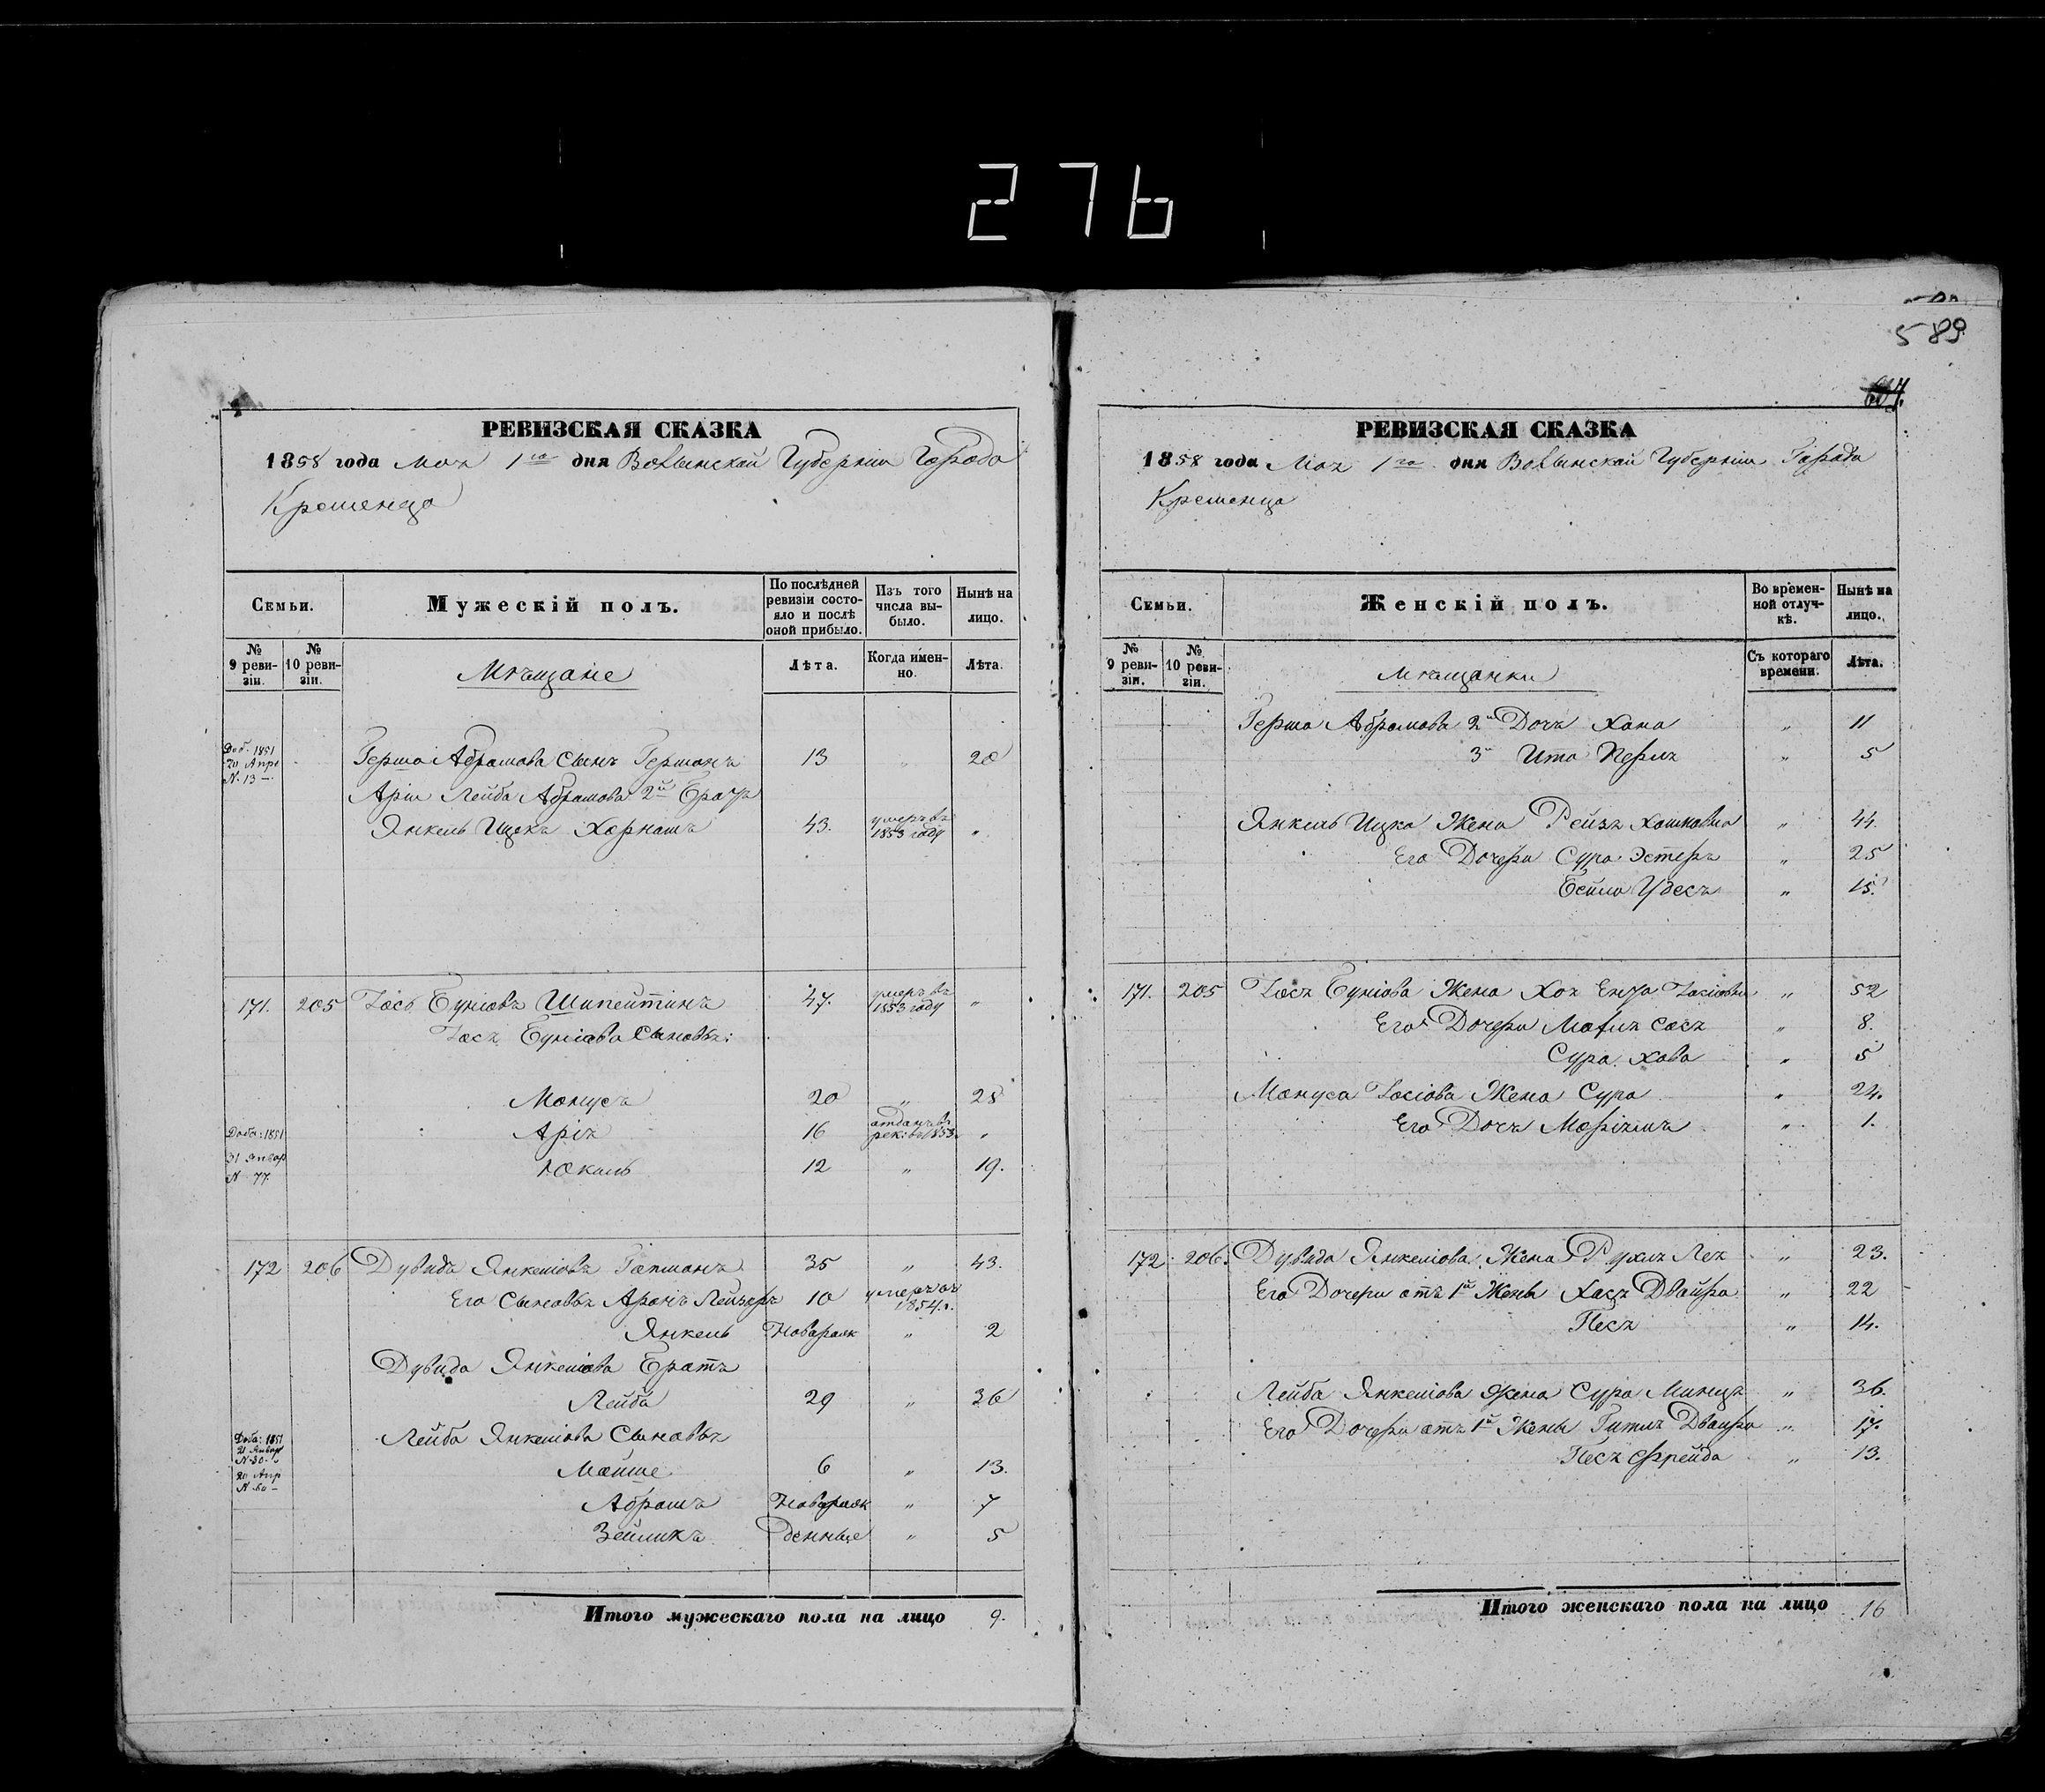 276
589
604.
РЕВИЗСКАЯ СКАЗКА
1858 года Мая 1го дня Волынской Губерніи Города
Кременца
Семьи.
Мужескій полъ.
По послѣдней ревизіи состояло и послѣ оной прибыло.
Изъ того числа выбыло.
Нынѣ на лицо.
№ 9 ревизіи.
№ 10 ревизіи.
Мѣщане
Лѣта.
Когда именно.
Лѣта.
Доб. 1851
20 Апре
N. 13
Герша Абрамова Сынъ Германъ 13 „ 20
Арія Лейба Абрамова 2й Братъ
Янкель Ицекъ Харнашъ 43. умеръ въ 1853 году „
171. 205 Іось Буніовъ Шпейтинъ 47. умеръ въ 1853 году „
Іося Буніова Сыновья:
Манусъ 20 „ 28
Доба: 1851
31 Январ
N 77.
Арія 16 отданъ въ рек: въ 1853. „
Юкель 12 „ 19.
172 206 Дувидъ Янкеліовъ Гапманъ 35 „ 43.
Его Сыновья Аронъ Лейзоръ 10 умеръ въ 1854 г.
Янкель Новорож „ 2
Дувида Янкеліова Братъ
Лейба 29 „ 36
Лейба Янкеліова Сыновья
Доба: 1851
21 Январ
N 30.
20 Апр
N 60
Мойше 6 „ 13.
Абрамъ Новорож „ 7
Зейликъ денные „ 5
Итого мужескаго пола на лицо 9.
РЕВИЗСКАЯ СКАЗКА
1858 года Мая 1го дня Волынской Губерніи Города
Кременца
Семьи.
Женскій полъ.
Во временной отлучкѣ.
Нынѣ на лицо.
№ 9 ревизіи.
№ 10 ревизіи.
Мѣщанки
Съ котораго времени.
Лѣта.
Герша Абрамова 2я Дочь Хана „ 11
3я Ита Перля „ 5
Янкель Ицка Жена Рейзя Хаимовна „ 44.
Его Дочери Сура Эстеръ „ 25
Бейла Удесъ „ 15.
171. 205 Іося Буніова Жена Хая Ента Іосіовна „ 52
Его Дочери Маля Сося „ 8.
Сура Хава „ 5
Мануса Іосіова Жена Сура „ 24.
Его Дочь Маріямъ „ 1.
172 206. Дувида Янкеліова Жена Рухля Лея „ 23.
Его Дочери отъ 1й Жены Хася Двойра „ 22
Песя „ 14.
Лейба Янкеліова Жена Сура Минця „ 36.
Его Дочери отъ 1й Жены Гитля Двойра „ 17.
Песя Фрейда „ 13.
Итого женскаго пола на лицо 16